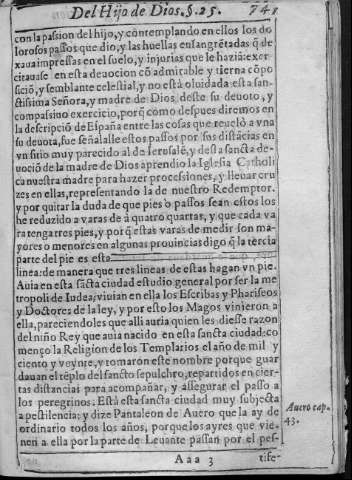 Del Hijo de Dios. §. 25. 741
con la passion del hijo, y contemplando en ellos los do
lorosos passos que dio, y las huellas ensangrẽtadas q̃ de
xaua impressas en el suelo, y injurias que le hazia: exer
citauase en esta deuocion cõ admirable y tierna cõpo
siciõ, y semblante celestial, y no està oluidada esta san-
ctissima Señora, y madre de Dios deste su deuoto, y
compassiuo exercicio, porq̃ como despues diremos en
la descripciõ de España entre las cosas que reuelò a vna
su deuota, fue señalalle estos passos por sus distãcias en
vn sitio muy parecido al de Ierusalẽ, y desta sancta de-
uociõ de la madre de Dios aprendio la Iglesia Catholi
ca nuestra madre para hazer processiones, y lleuar cru
zes en ellas, representando la de nuestro Redemptor.
y por quitar la duda de que pies o passos sean estos los
he reduzido a varas de à quatro quartas, y que cada va
ra tenga tres pies, y porq̃ estas varas de medir son ma-
yores o menores en algunas prouincias digo q̃ la tercia
parte del pie es esta
linea: de manera que tres lineas de estas hagan vn pie.
Auia en esta sãcta ciudad estudio general por ser la me
tropoli de Iudea, viuian en ella los Escribas y Phariseos
y Doctores de la ley, y por esto los Magos vinieron a
ella, pareciendoles que alli auria quien les diesse razon
del niño Rey que auia nacido en esta sancta ciudad: co
menço la Religion de los Templarios el año de mil y
ciento y veynte, y tomaron este nombre porque guar
dauan el tẽplo del sancto sepulchro, repartidos en cier-
tas distancias para acompañar, y assegurar el passo a
los peregrinos. Està esta sancta ciudad muy subjecta
a pestilencia: y dize Pantaleon de Auero que la ay de
ordinario todos los años, porque los ayres que vie-
nen a ella por la parte de Leuante passan por el pes-
Auero cap.
43.
Aaa 3 tife-